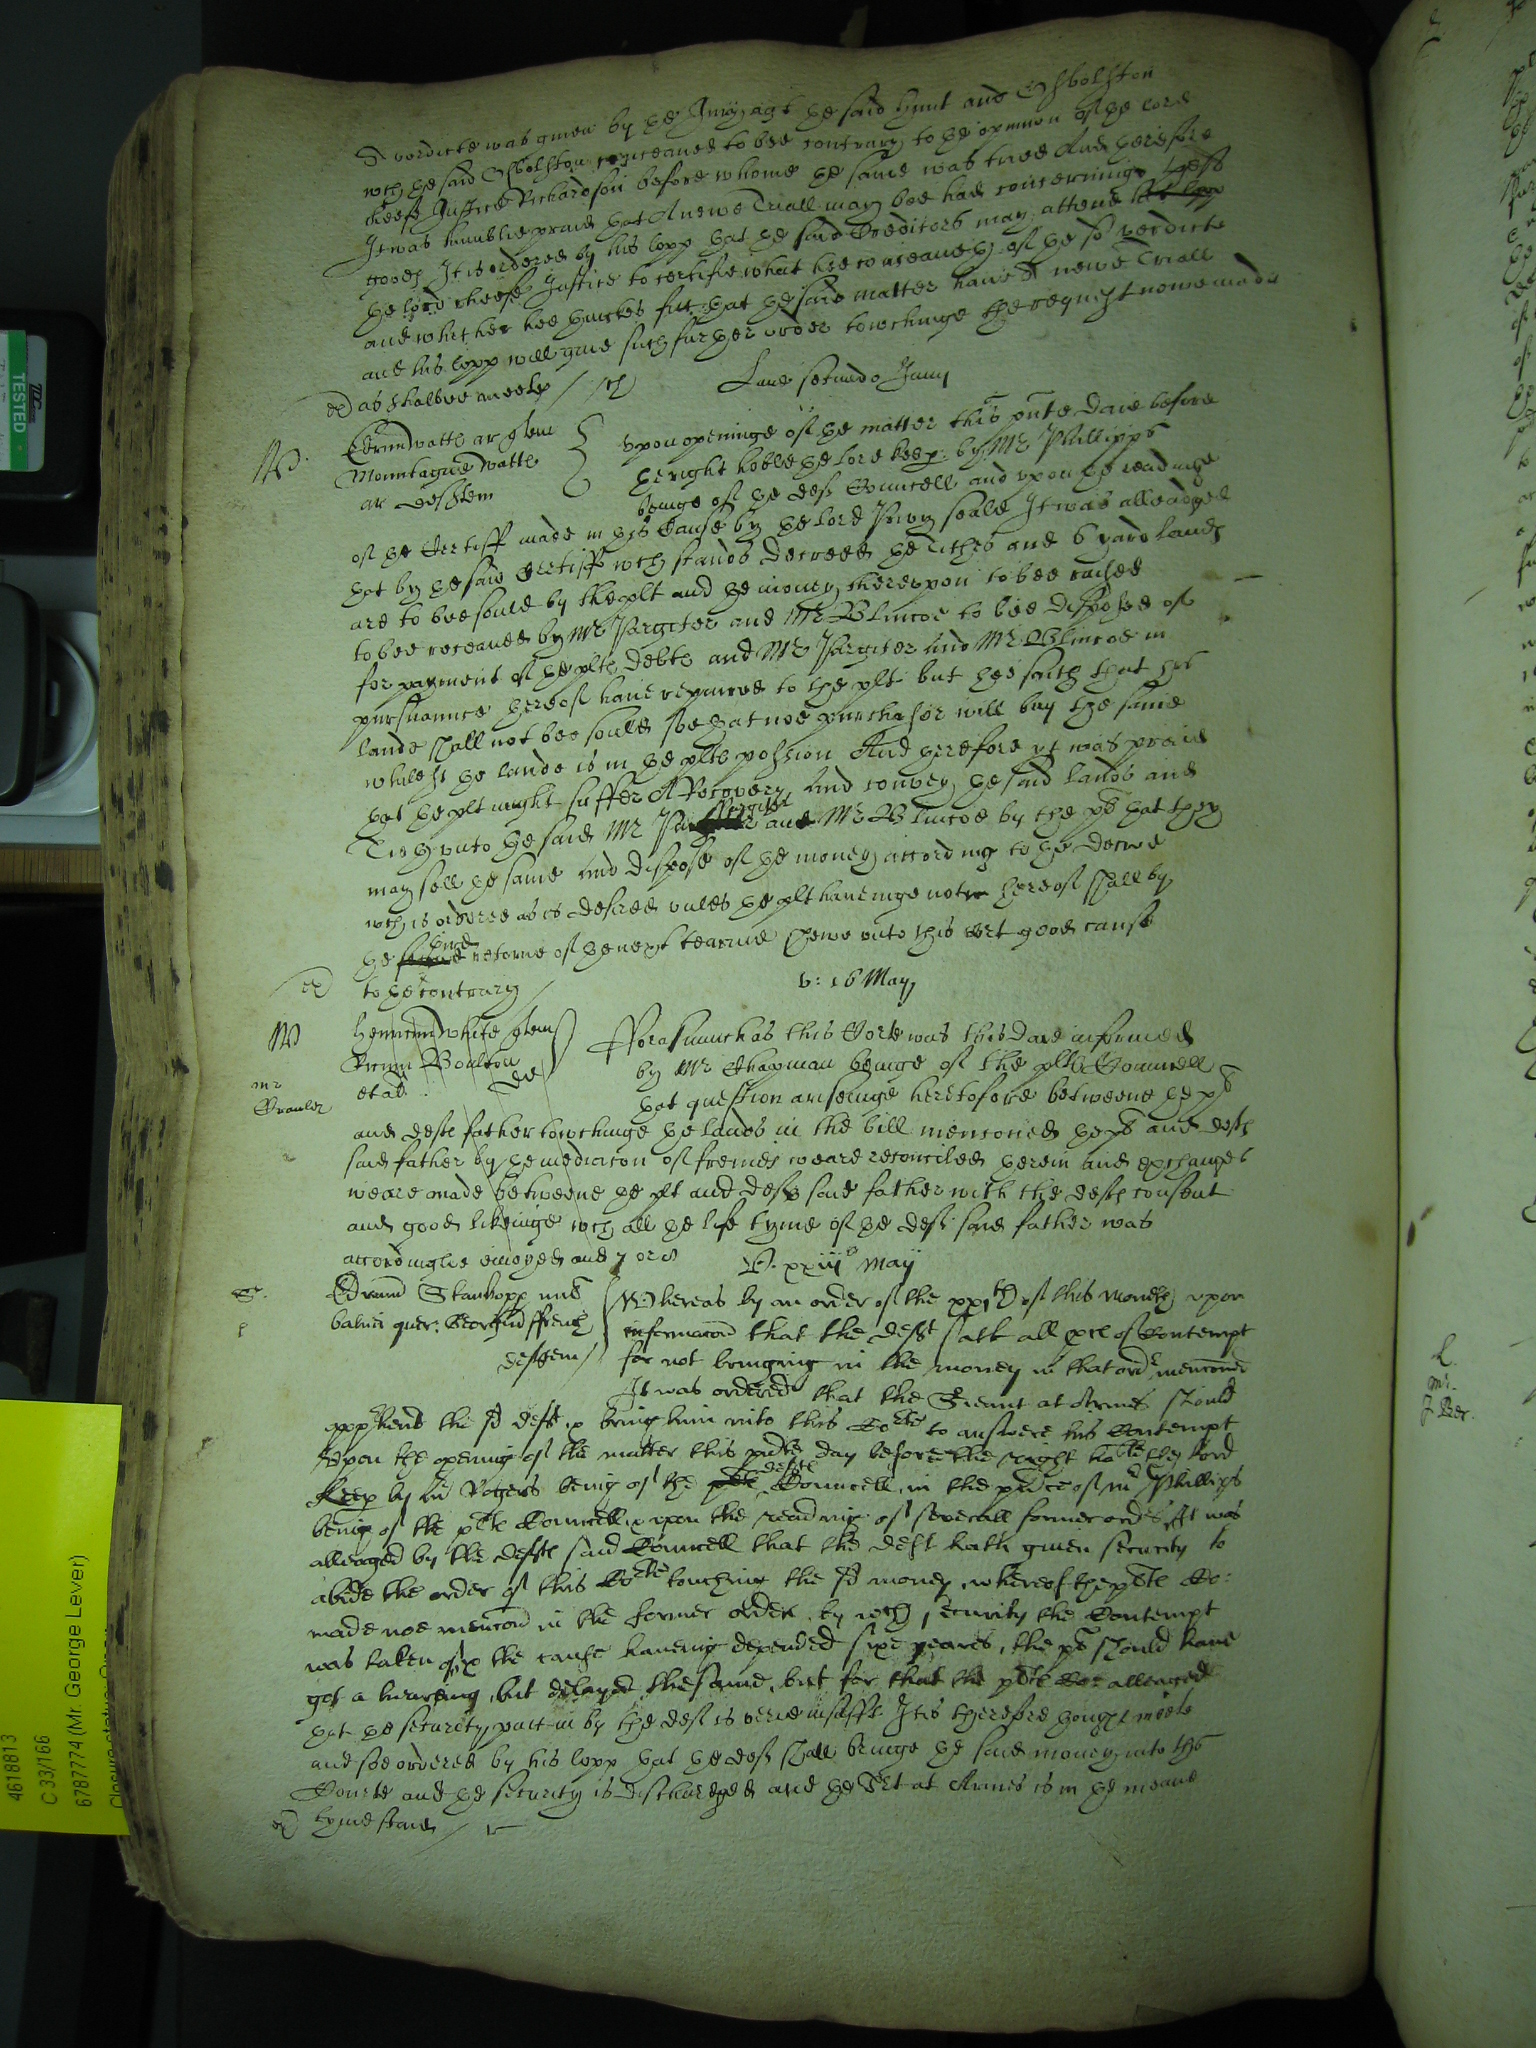 A verdicte was given by the Jury agt the said Hunt and Osbolston
wch the said Osbolston conceaved to bee contrary to the opinion of the lord
cheefe Justice Richardson before whome the same was tried And therefore
It was humblie praied that A newe Triall may bee had concerninge the sd
goods It is ordered by his lopp that the said Creditors may attend
the lord cheefe Justice to certifie what hee conceaveth of the sd verdicte
and whither hee thinkes fitt that the said matter have A newe Triall
and his lopp will give such further order towchinge the request nowe made
as shalbee meete
Lune secundo Junij
W.
Edrum watts ar quer
Mountague watts
ar def
Upon openinge of the matter this pnte Daie before
the right hoble the lord keep. by Mr Phillipps
beinge of the defts Councell and upon the readinge
of the Certiff made in this Cause by the lord Privy seale It was alleadged
that by the said Certiff wch stands Decreed the Tithes and 6 yard lands
are to bee sould by the plt and the money thereupon to bee raised
to bee receaved by Mr Pargiter and Mr Blincoe to bee disposed of
for payment of the plts Debts and Mr Pargiter and Mr Blincoe in
pursuance thereof have repaired to the plt but hee saith that his
lande shall not bee sould soe that noe purchasor will buy the same
whilest the lande is in the plts possion And therefore yt was praied
that the plt might suffer A Recovery And convey the said lands and
Tiths unto the said Mr Pargiter and Mr Blincoe by the that they
may sell the same And dispose of the money according to the Decree
wch is ordered as is desired unles the plt haveinge notice hereof shall by
the third retorne of the next tearme shewe unto this Cort good cause
to the contrary
v: 16 May
W
mr
Henricum White quer
Boulton
et al def
Forasmuch as this Corte was this Daie informed
by Mr Chapman beinge of the plts Councell
that question ariseinge heretofore betweene the plt
and defts father towchinge the lands in the bill menconed the plt and defts
said father by the mediacon of freinds weare reconciled therein and exchanges
weare made betweene the plt and defts said father with the defts consent
and good likeinge wch all the life tyme of the defts said father was
accordinglie enioyed and 7 or 8
V. xxiijo Maij
Edrum Stanhopp
quer. Georgiu ffrench
def
Whereas by an order of the xxjth of this moneth upon
informacon that the deft satt all pces of Contempt
for not bringing in the money in that ordr menconed
It was ordered that the Sieant at Armes should
apphend the sd deft & bring him into this Corte to answere his Contempt
Upon the opening of the matter this pnte day before the right hoble the lord
Keep by Mr Rogers being of the defts Councell, in the pnce of mr Phillips
being of the plts Councell & upon the reading of severall former ordrs It was
alleaged by the defts said Councell that the deft hath given security to
abide the order of this Corte touching the sd money, whereof the plts Co:
made noe mencon in the former order, by wch security the Contempt
was taken of, & the cause haveing depended sixe yeares, the plt should have
got a hearing, but delayed the same, but for that the plts Co: alleaged
that the security putt in by the deft is verie insufft. It is therefore thought meete
and soe ordered by his lopp that the deft shall bringe the said money into this
Courte and the security is discharged and the Srt at Armes is in the meane
tyme staied
TESTED
4618813
C 33/166
6787774 (Mr. George Lever)